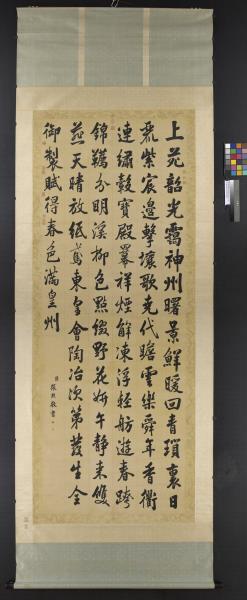 上苑韶光靄神州曙景鮮暖回青瑣裏日
麗紫宸邊擊壤歌堯代瞻雲樂舜年香衢
連繡轂寶殿冪祥煙解凍浮輕舫遊春跨
錦韉分明溪柳色點綴野花妍午靜來雙
燕天晴放紙鳶東皇會陶冶次第發生全
御製賦得春色滿皇州
臣張照敬書